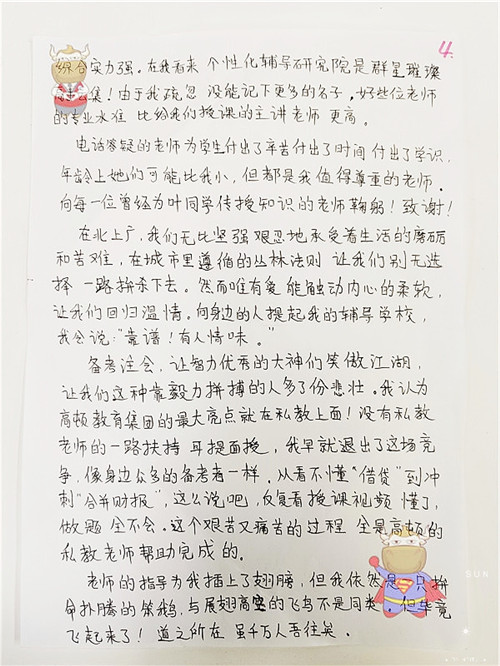 4.
综合实力强。在我看来 个性化辅导研究院是群星璀璨
集!由于我疏忽 没能记下更多的名子,好些位老师
的专业水准 比给我们授课的主讲老师 更高。
电话答疑的老师为学生付出了辛苦付出了时间 付出了学识,
年龄上她们可能比我小,但都是我值得尊重的老师.
向每一位曾经为叶同学传授知识的老师鞠躬!致谢!
在北上广,我们无比坚强 艰忍地承受着生活的磨砺
和苦难,在城市里遵循的丛林法则 让我们别无选
择 一路拚杀下去。然而唯有爱 能触动内心的柔软,
让我们回归温情。向身边的人提起我的辅导学校,
我会说:"靠谱!有人情味。"
备考注会,让智力优秀的大神们笑傲江湖,
让我们这种靠毅力拼搏的人多了份悲壮。我认为
高顿教育集团的最大亮点就在私教上面!没有私教
老师的一路扶持 耳提面授,我早就退出了这场竞
争,像身边众多的备考者一样。从看不懂"借贷"到冲
刺"合并财报",这么说吧,反复看授课视频 懂了,
做题 全不会。这个艰苦又痛苦的过程 全是高顿的
私教老师帮助完成的。
老师的指导为我插上了翅膀,但我依然是一只拚
命扑腾的笨鹅,与展翅高空的飞鸟不是同类,但毕竟
飞起来了!道之所在 虽千万人吾往矣.